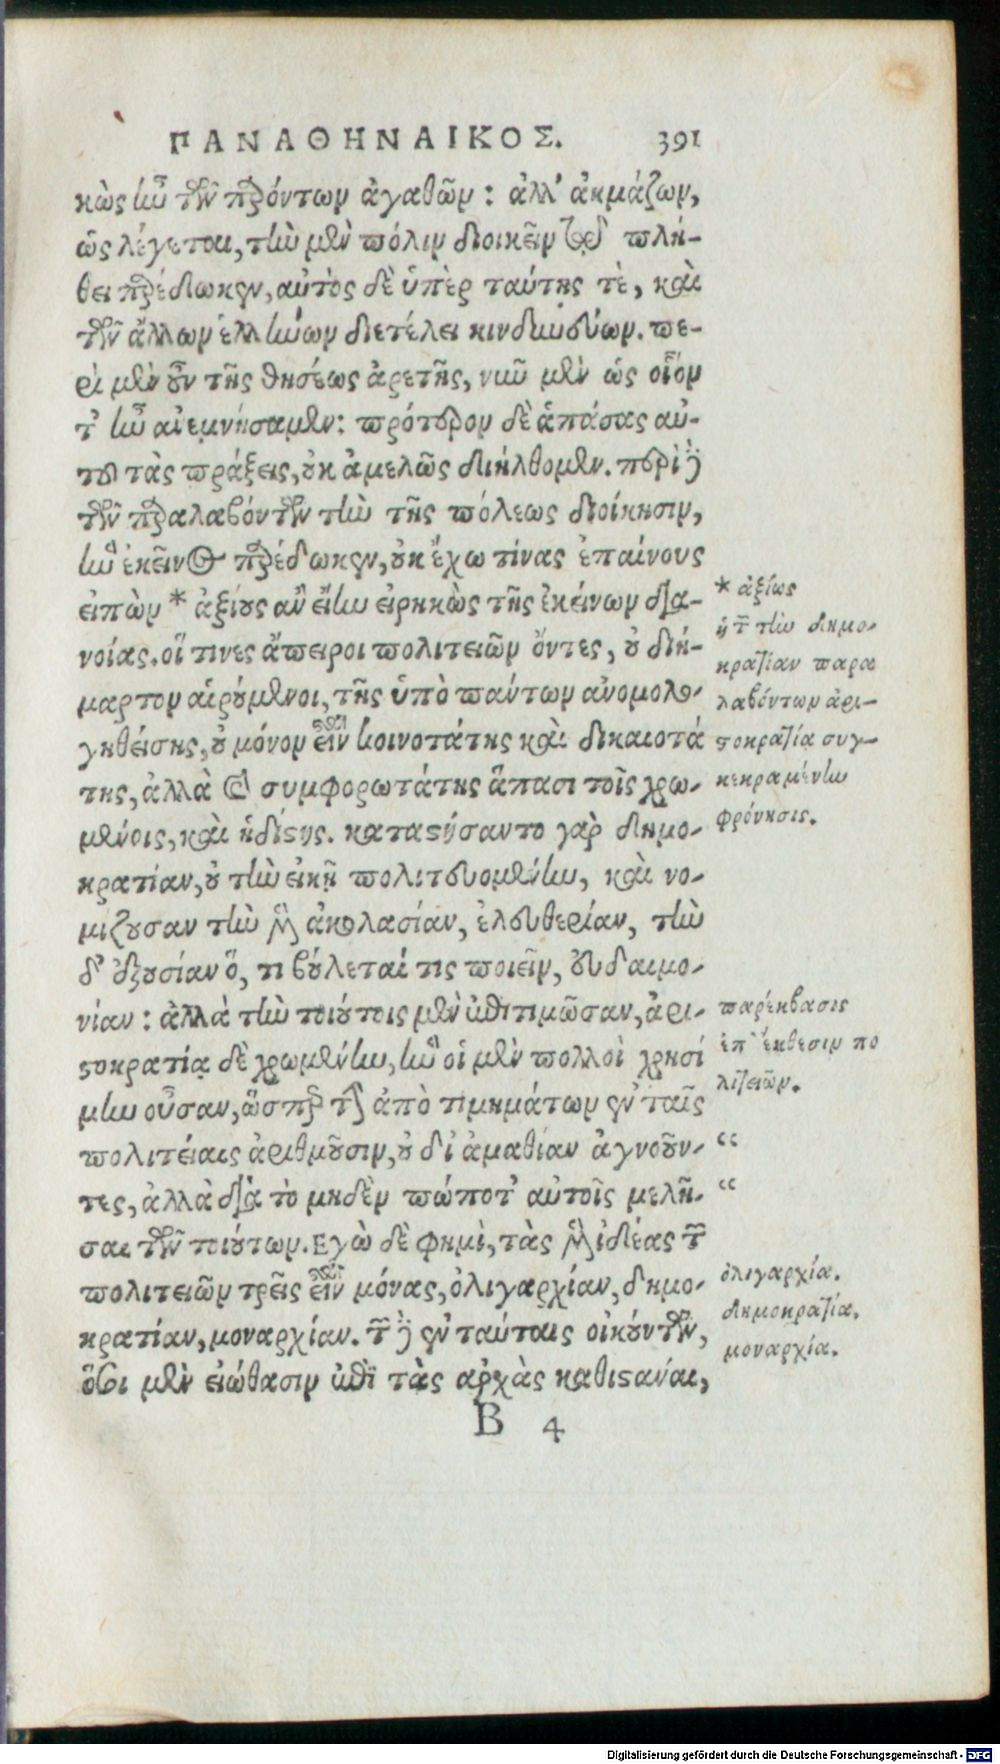 ΠΑΝΑΘΗΝΑΙΚΟΣ. 391
κὼς ἦν τῶν παρόντων ἀγαθῶν: ἀλλ' ἀκμάζων,
ὡς λέγεται, τὴν μὲν πόλιν διοικεῖν τῷ πλή-
θει παρέδωκεν, αὐτὸς δὲ ὑπὲρ ταύτης τὲ, καὶ
τῶν ἄλλων ἑλλήνων διετέλει κινδυνεύων. πε-
ρὶ μὲν οὖν τῆς θησέως ἀρετῆς, νῦν μὲν ὡς οἷόν
τ' ἦν ἀνεμνήσαμεν: πρότερον δὲ ἁπάσας αὐ-
τοῦ τὰς πράξεις, οὐκ ἀμελῶς διήλθομεν. περὶ δὲ
τῶν παραλαβόντων τὴν τῆς πόλεως διοίκησιν,
ἣν ἐκεῖνος παρέδωκεν, οὐκ ἔχω τίνας ἐπαίνους
εἰπὼν * ἀξίους ἂν εἴην εἰρηκὼς τῆς ἐκείνων δια-
νοίας. οἵ τινες ἄπειροι πολιτειῶν ὄντες, οὐ διή-
μαρτον αἱρούμενοι, τῆς ὑπὸ πάντων ἀνομολο-
γηθείσης, οὐ μόνον εἶναι κοινοτάτης καὶ δικαιοτά
της, ἀλλὰ καὶ συμφορωτάτης ἅπασι τοῖς χρω-
μένοις, καὶ ἡδίστης. κατεστήσαντο γὰρ δημο-
κρατίαν, οὐ τὴν εἰκῇ πολιτευομένην, καὶ νο-
μίζουσαν τὴν μὲν ἀκολασίαν, ἐλευθερίαν, τὴν
δ' ἐξουσίαν ὅ, τι βούλεταί τις ποιεῖν, εὐδαιμο-
νίαν: ἀλλὰ τὴν τοιούτοις μὲν ἐπιτιμῶσαν, ἀρι-
στοκρατίᾳ δὲ χρωμένην, ἣν οἱ μὲν πολλοὶ χρησί
μην οὖσαν, ὥσπερ τὴν ἀπὸ τιμημάτων ἐν ταῖς
πολιτείαις ἀριθμοῦσιν, οὐ δι' ἀμαθίαν ἀγνοοῦν-
τες, ἀλλὰ διὰ τὸ μηδὲν πώποτ' αὐτοῖς μελῆ-
σαι τῶν τοιούτων. Εγὼ δὲ φημὶ, τὰς μὲν ἰδέας τῶν
πολιτειῶν τρεῖς εἶναι μόνας, ὀλιγαρχίαν, δημο-
κρατίαν, μοναρχίαν. τῶν δὲ ἐν ταύταις οἰκούντων,
ὅσοι μὲν εἰώθασιν ἐπὶ τὰς ἀρχὰς καθιστάναι,
B 4
* ἀξίως
ἡ τῶν τὴν δημο-
κρατίαν παρα
λαβόντων ἀρι-
στοκρατία συγ-
κεκραμένην
φρόνησις.
παρέκβασις
ἐπ' ἔκθεσιν πο
λιτειῶν.
“
“
ὀλιγαρχία.
δημοκρατία.
μοναρχία.
Digitalisierung gefördert durch die Deutsche Forschungsgemeinschaft - DFG